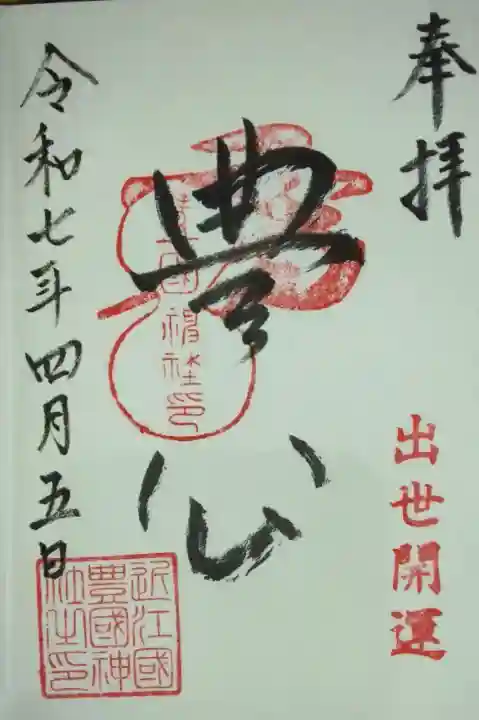 奉拝
出世開運
豊公
豊國神社印
令和七年四月五日
近江國
豊國神
社之印